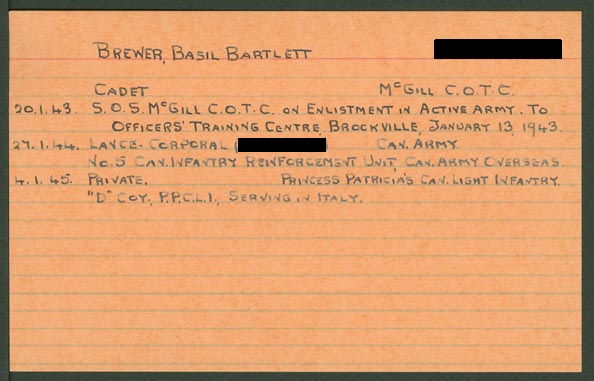 BREWER, BASIL BARTLETT
CADET McGILL C.O.T.C.
20.1.43. S.O.S. McGILL C.O.T.C. ON ENLISTMENT IN ACTIVE ARMY. TO
OFFICERS' TRAINING CENTRE, BROCKVILLE, JANUARY 13, 1943.
27.1.44. LANCE-CORPORAL ( ) CAN. ARMY
No. 5 CAN. INFANTRY REINFORCEMENT UNIT, CAN. ARMY OVERSEAS.
4.1.45. PRIVATE. PRINCESS PATRICIA'S CAN. LIGHT INFANTRY.
"D" COY., P.P.C.L.I., SERVING IN ITALY.